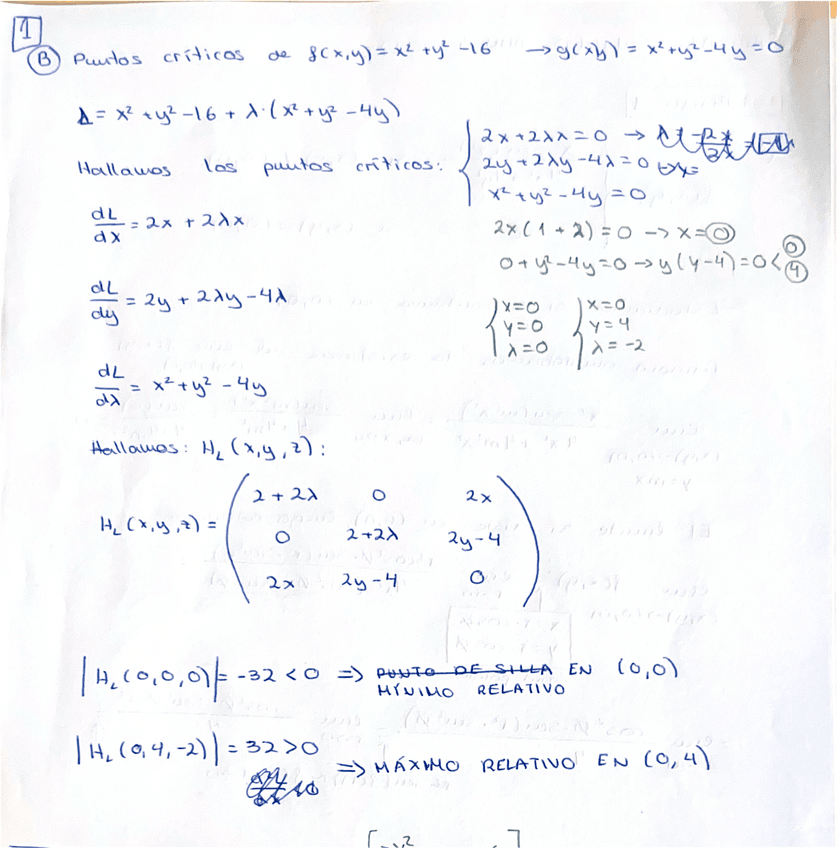 1
B Puntos críticos de f(x,y) = x² + y² - 16 → g(x,y) = x² + y² - 4y = 0
L = x² + y² - 16 + λ·(x² + y² - 4y)
Hallamos los puntos críticos:
2x + 2λx = 0 →
2y + 2λy - 4λ = 0
x² + y² - 4y = 0
2x(1 + λ) = 0 → x = 0
0 + y² - 4y = 0 → y(y-4) = 0 < 0 4
dL/dx = 2x + 2λx
dL/dy = 2y + 2λy - 4λ
dL/dλ = x² + y² - 4y
x=0 x=0
y=0 y=4
λ=0 λ=-2
Hallamos: H_L (x,y,z):
H_L (x,y,z) =
2+2λ 0 2x
0 2+2λ 2y-4
2x 2y-4 0
|H_L (0,0,0)| = -32 < 0 => PUNTO DE SILLA EN (0,0)
MÍNIMO RELATIVO
|H_L (0,4,-2)| = 32 > 0
=> MÁXIMO RELATIVO EN (0,4)